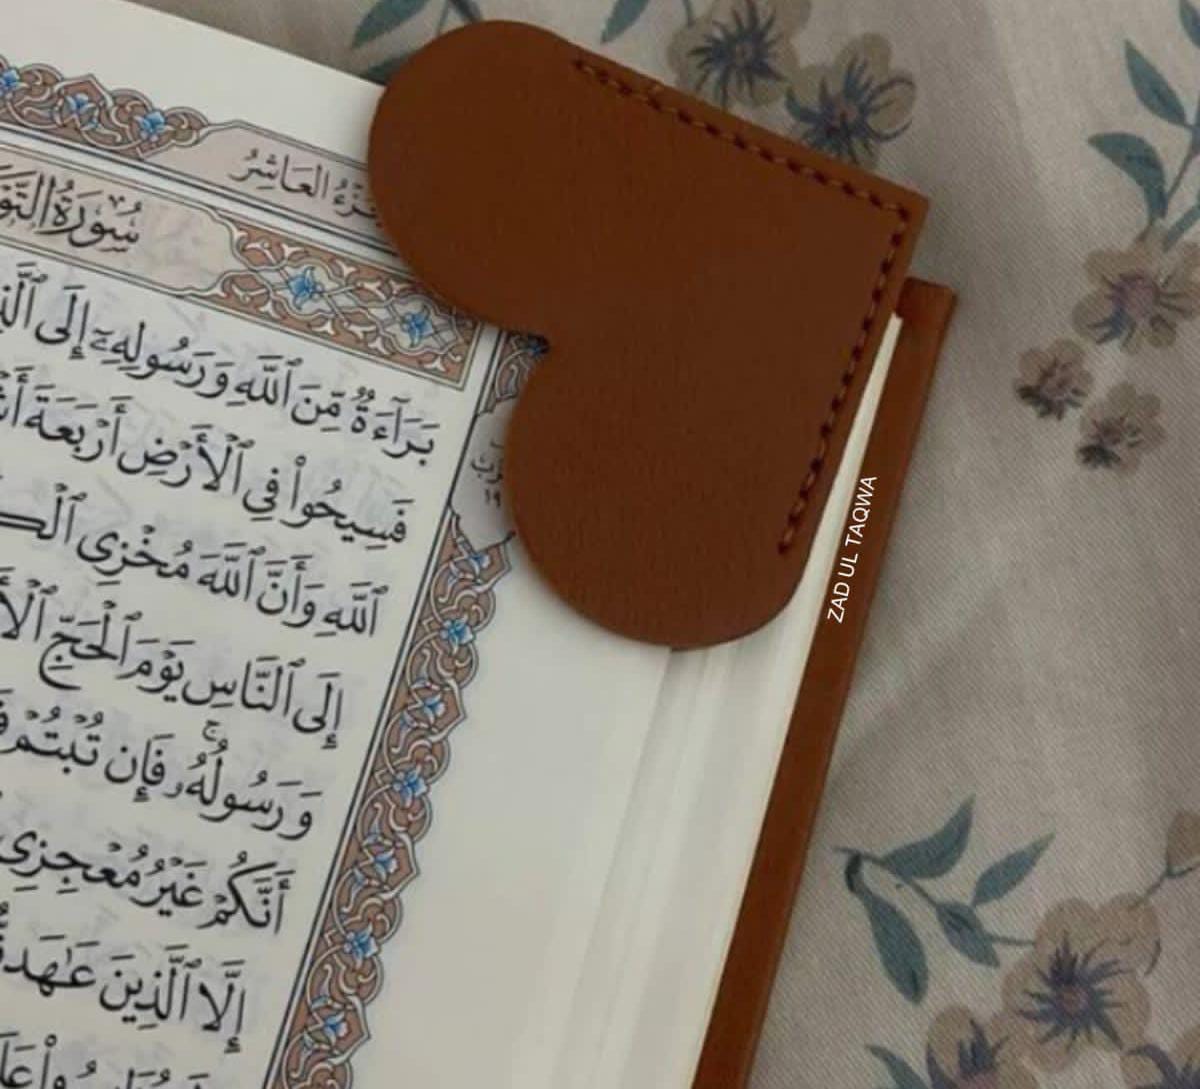 العَاشِرُ
سُورَةُ
بَرَآءَةٌ مِّنَ ٱللَّهِ وَرَسُولِهِۦٓ إِلَى
فَسِيحُوا۟ فِى ٱلْأَرْضِ أَرْبَعَةَ
ٱللَّهِ وَأَنَّ ٱللَّهَ مُخْزِى
إِلَى ٱلنَّاسِ يَوْمَ ٱلْحَجِّ
وَرَسُولُهُۥ ۚ فَإِن تُبْتُمْ
أَنَّكُمْ غَيْرُ مُعْجِزِى
إِلَّا ٱلَّذِينَ
١٩
ZAD UL TAQWA